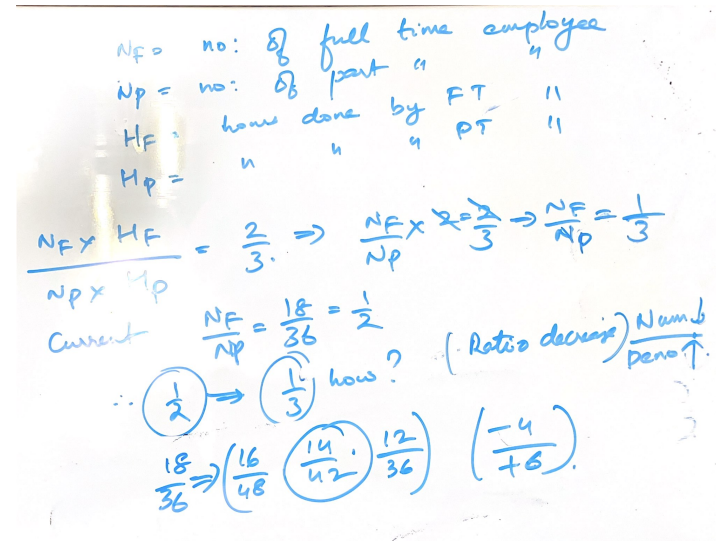 NF = no: of full time employee
NP = no: of part " "
HF = hours done by FT "
HP = " " " PT "
NF × HF / NP × HP = 2/3. ⇒ NF/NP × 2 = 2/3 ⇒ NF/NP = 1/3
Current NF/NP = 18/36 = 1/2
(Ratio decrease) Num↓/Deno↑.
∴ 1/2 ⇒ 1/3 how?
18/36 ⇒ (16/48 14/42 . 12/36) (-4/+6).